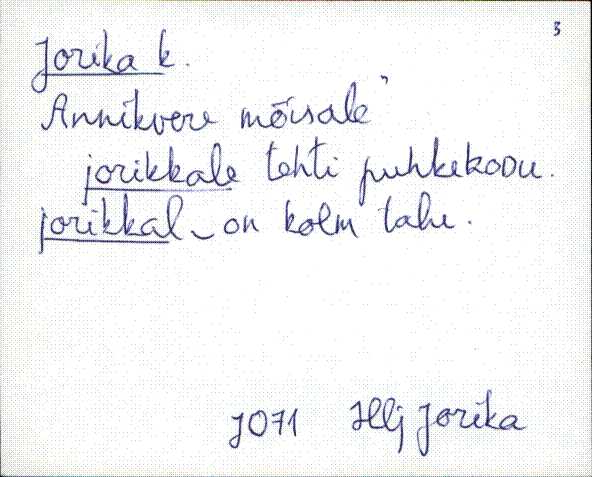 3
Jorika k.
Annikvere mõisale"
jorikkale tehti puhkekodu.
jorikkal on kolm talu.
J071 Hlj Jorika